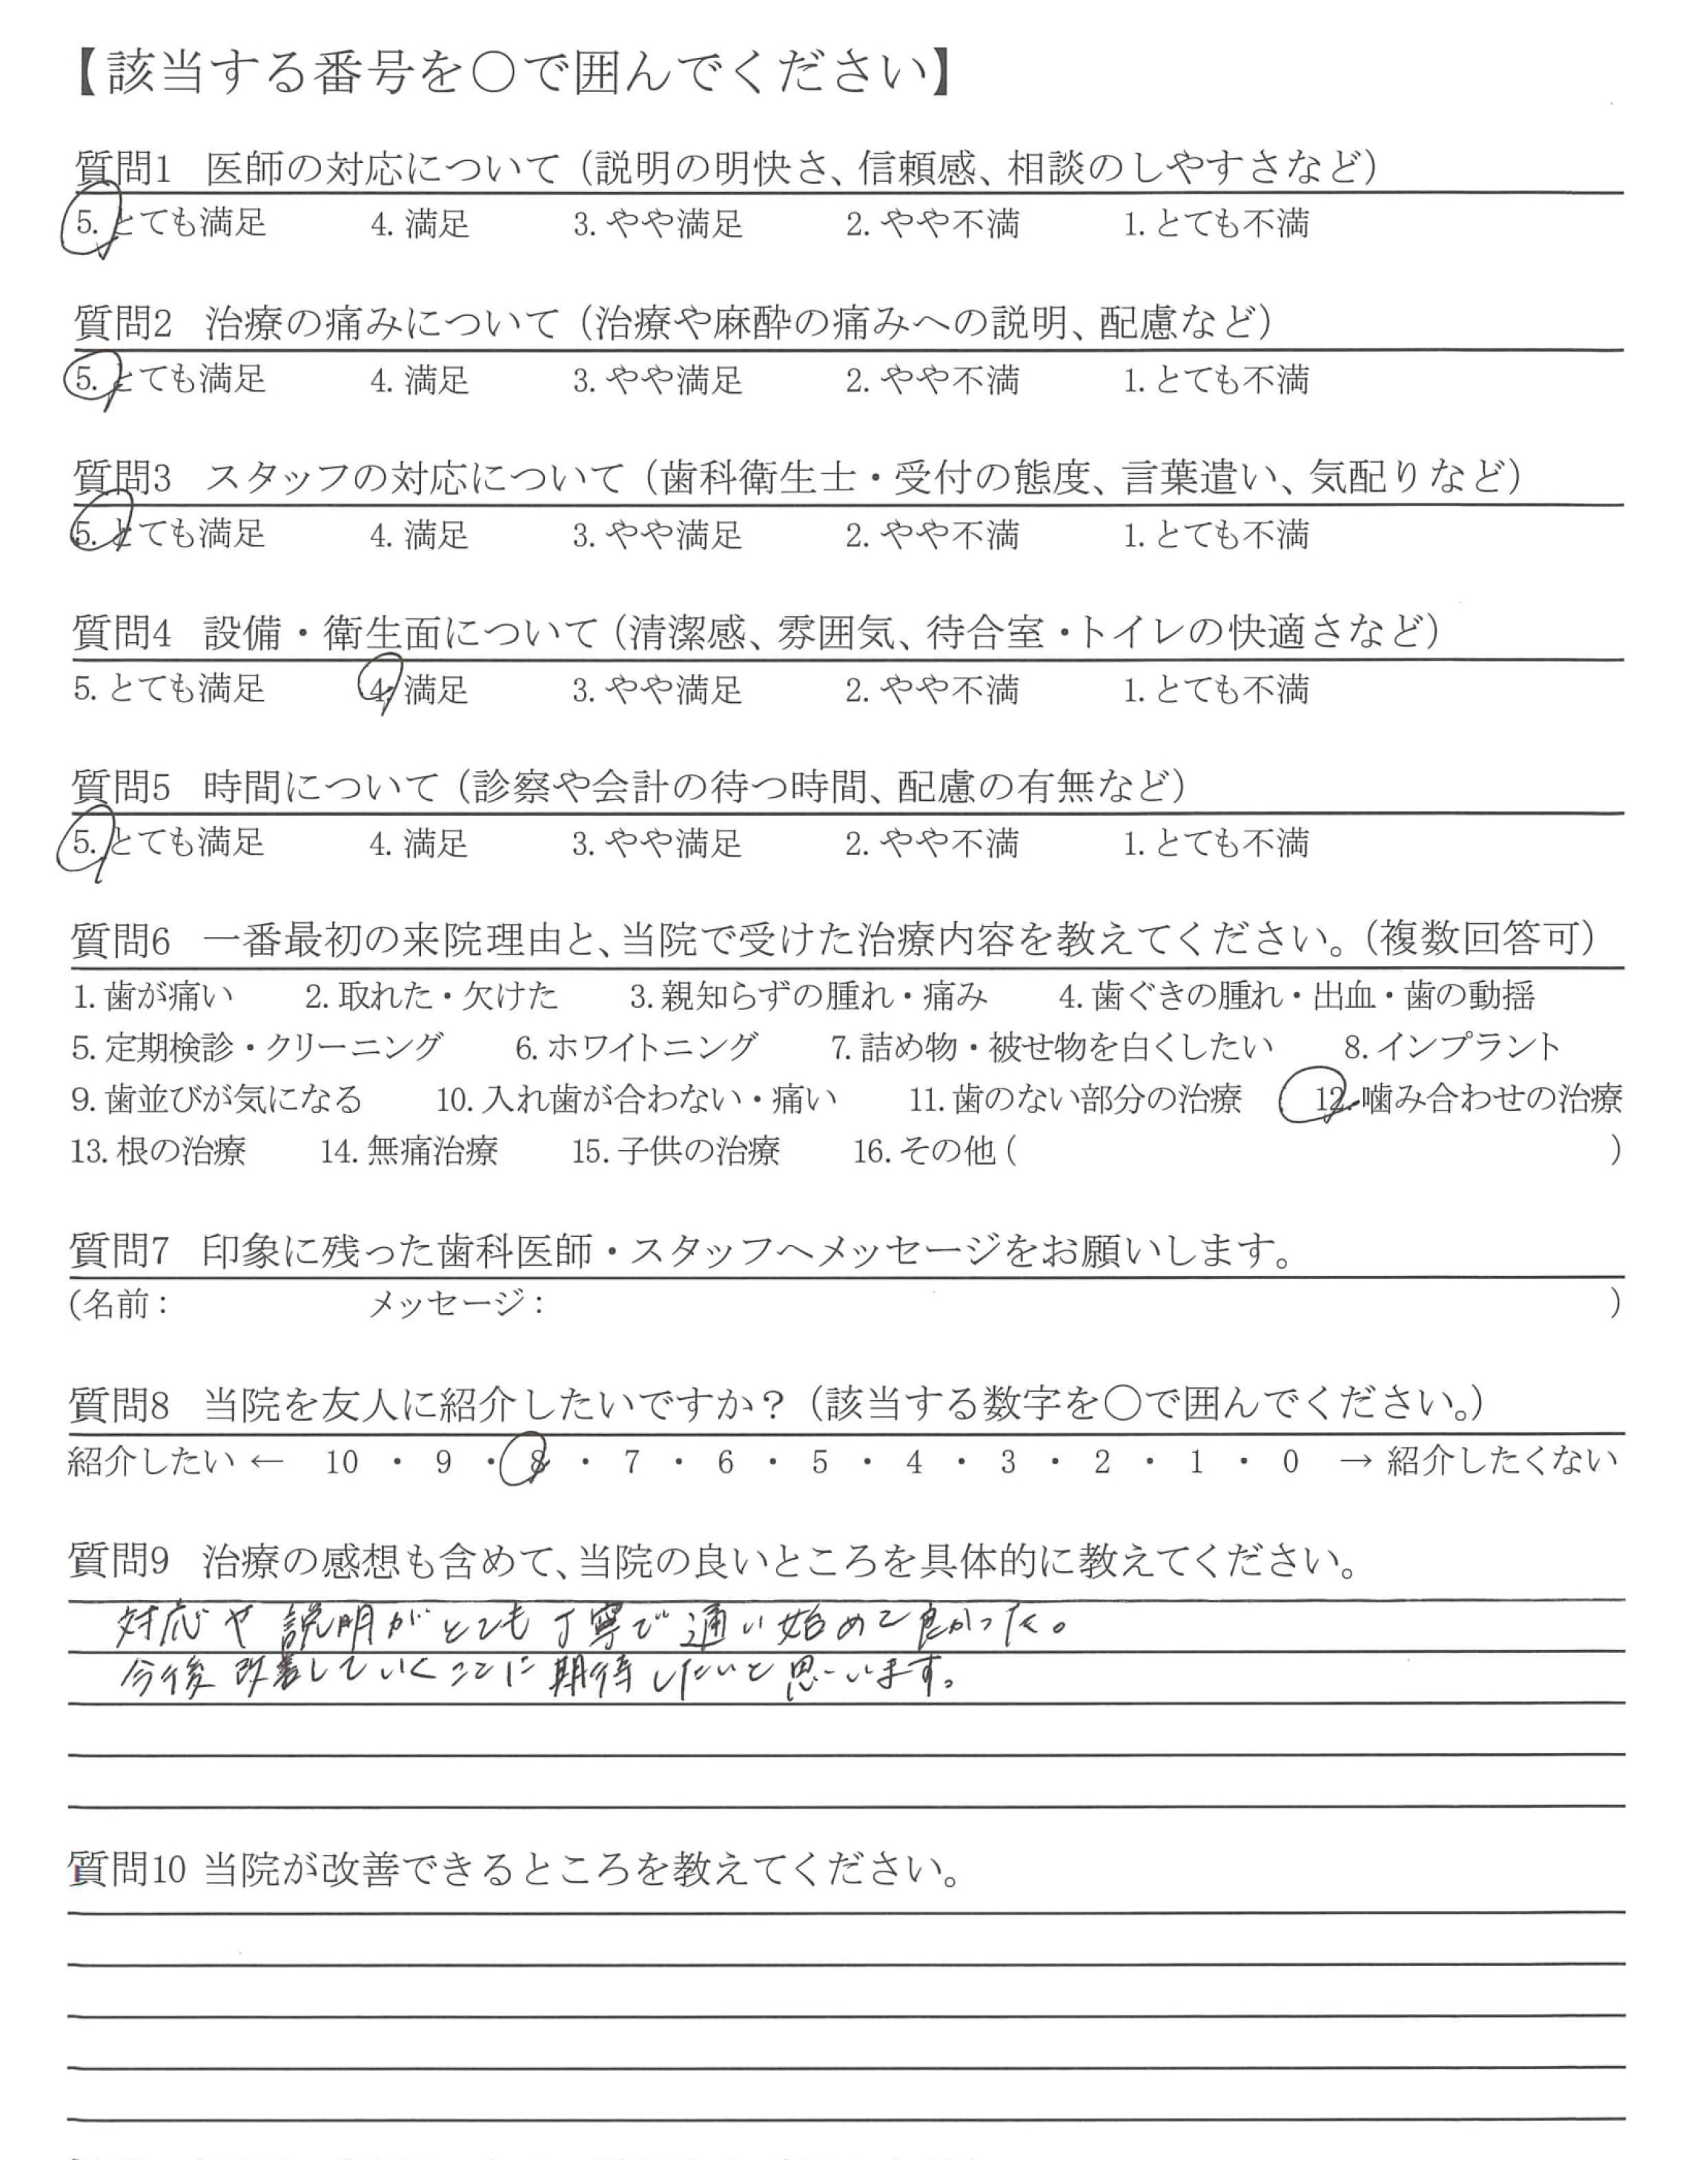 【該当する番号を〇で囲んでください】
質問1 医師の対応について（説明の明快さ、信頼感、相談のしやすさなど）
5. とても満足 4. 満足 3. やや満足 2. やや不満 1. とても不満
質問2 治療の痛みについて（治療や麻酔の痛みへの説明、配慮など）
5. とても満足 4. 満足 3. やや満足 2. やや不満 1. とても不満
質問3 スタッフの対応について（歯科衛生士・受付の態度、言葉遣い、気配りなど）
5. とても満足 4. 満足 3. やや満足 2. やや不満 1. とても不満
質問4 設備・衛生面について（清潔感、雰囲気、待合室・トイレの快適さなど）
5. とても満足 4. 満足 3. やや満足 2. やや不満 1. とても不満
質問5 時間について（診察や会計の待つ時間、配慮の有無など）
5. とても満足 4. 満足 3. やや満足 2. やや不満 1. とても不満
質問6 一番最初の来院理由と、当院で受けた治療内容を教えてください。（複数回答可）
1. 歯が痛い 2. 取れた・欠けた 3. 親知らずの腫れ・痛み 4. 歯ぐきの腫れ・出血・歯の動揺
5. 定期検診・クリーニング 6. ホワイトニング 7. 詰め物・被せ物を白くしたい 8. インプラント
9. 歯並びが気になる 10. 入れ歯が合わない・痛い 11. 歯のない部分の治療 12. 噛み合わせの治療
13. 根の治療 14. 無痛治療 15. 子供の治療 16. その他 ( )
質問7 印象に残った歯科医師・スタッフへメッセージをお願いします。
(名前： メッセージ： )
質問8 当院を友人に紹介したいですか？（該当する数字を〇で囲んでください。）
紹介したい ← 10 ・ 9 ・ 8 ・ 7 ・ 6 ・ 5 ・ 4 ・ 3 ・ 2 ・ 1 ・ 0 → 紹介したくない
質問9 治療の感想も含めて、当院の良いところを具体的に教えてください。
対応や説明がとても丁寧で通い始めて良かった。
今後改善していくことに期待したいと思います。
質問10 当院が改善できるところを教えてください。